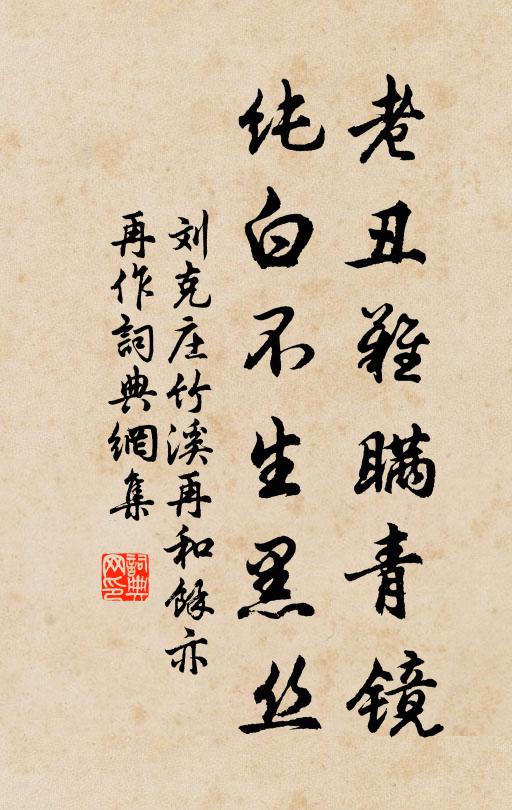 老丑難瞞青镜
纯白不生黑丝
刘克庄竹溪再和馀亦
再作詞典網集
詞典网印